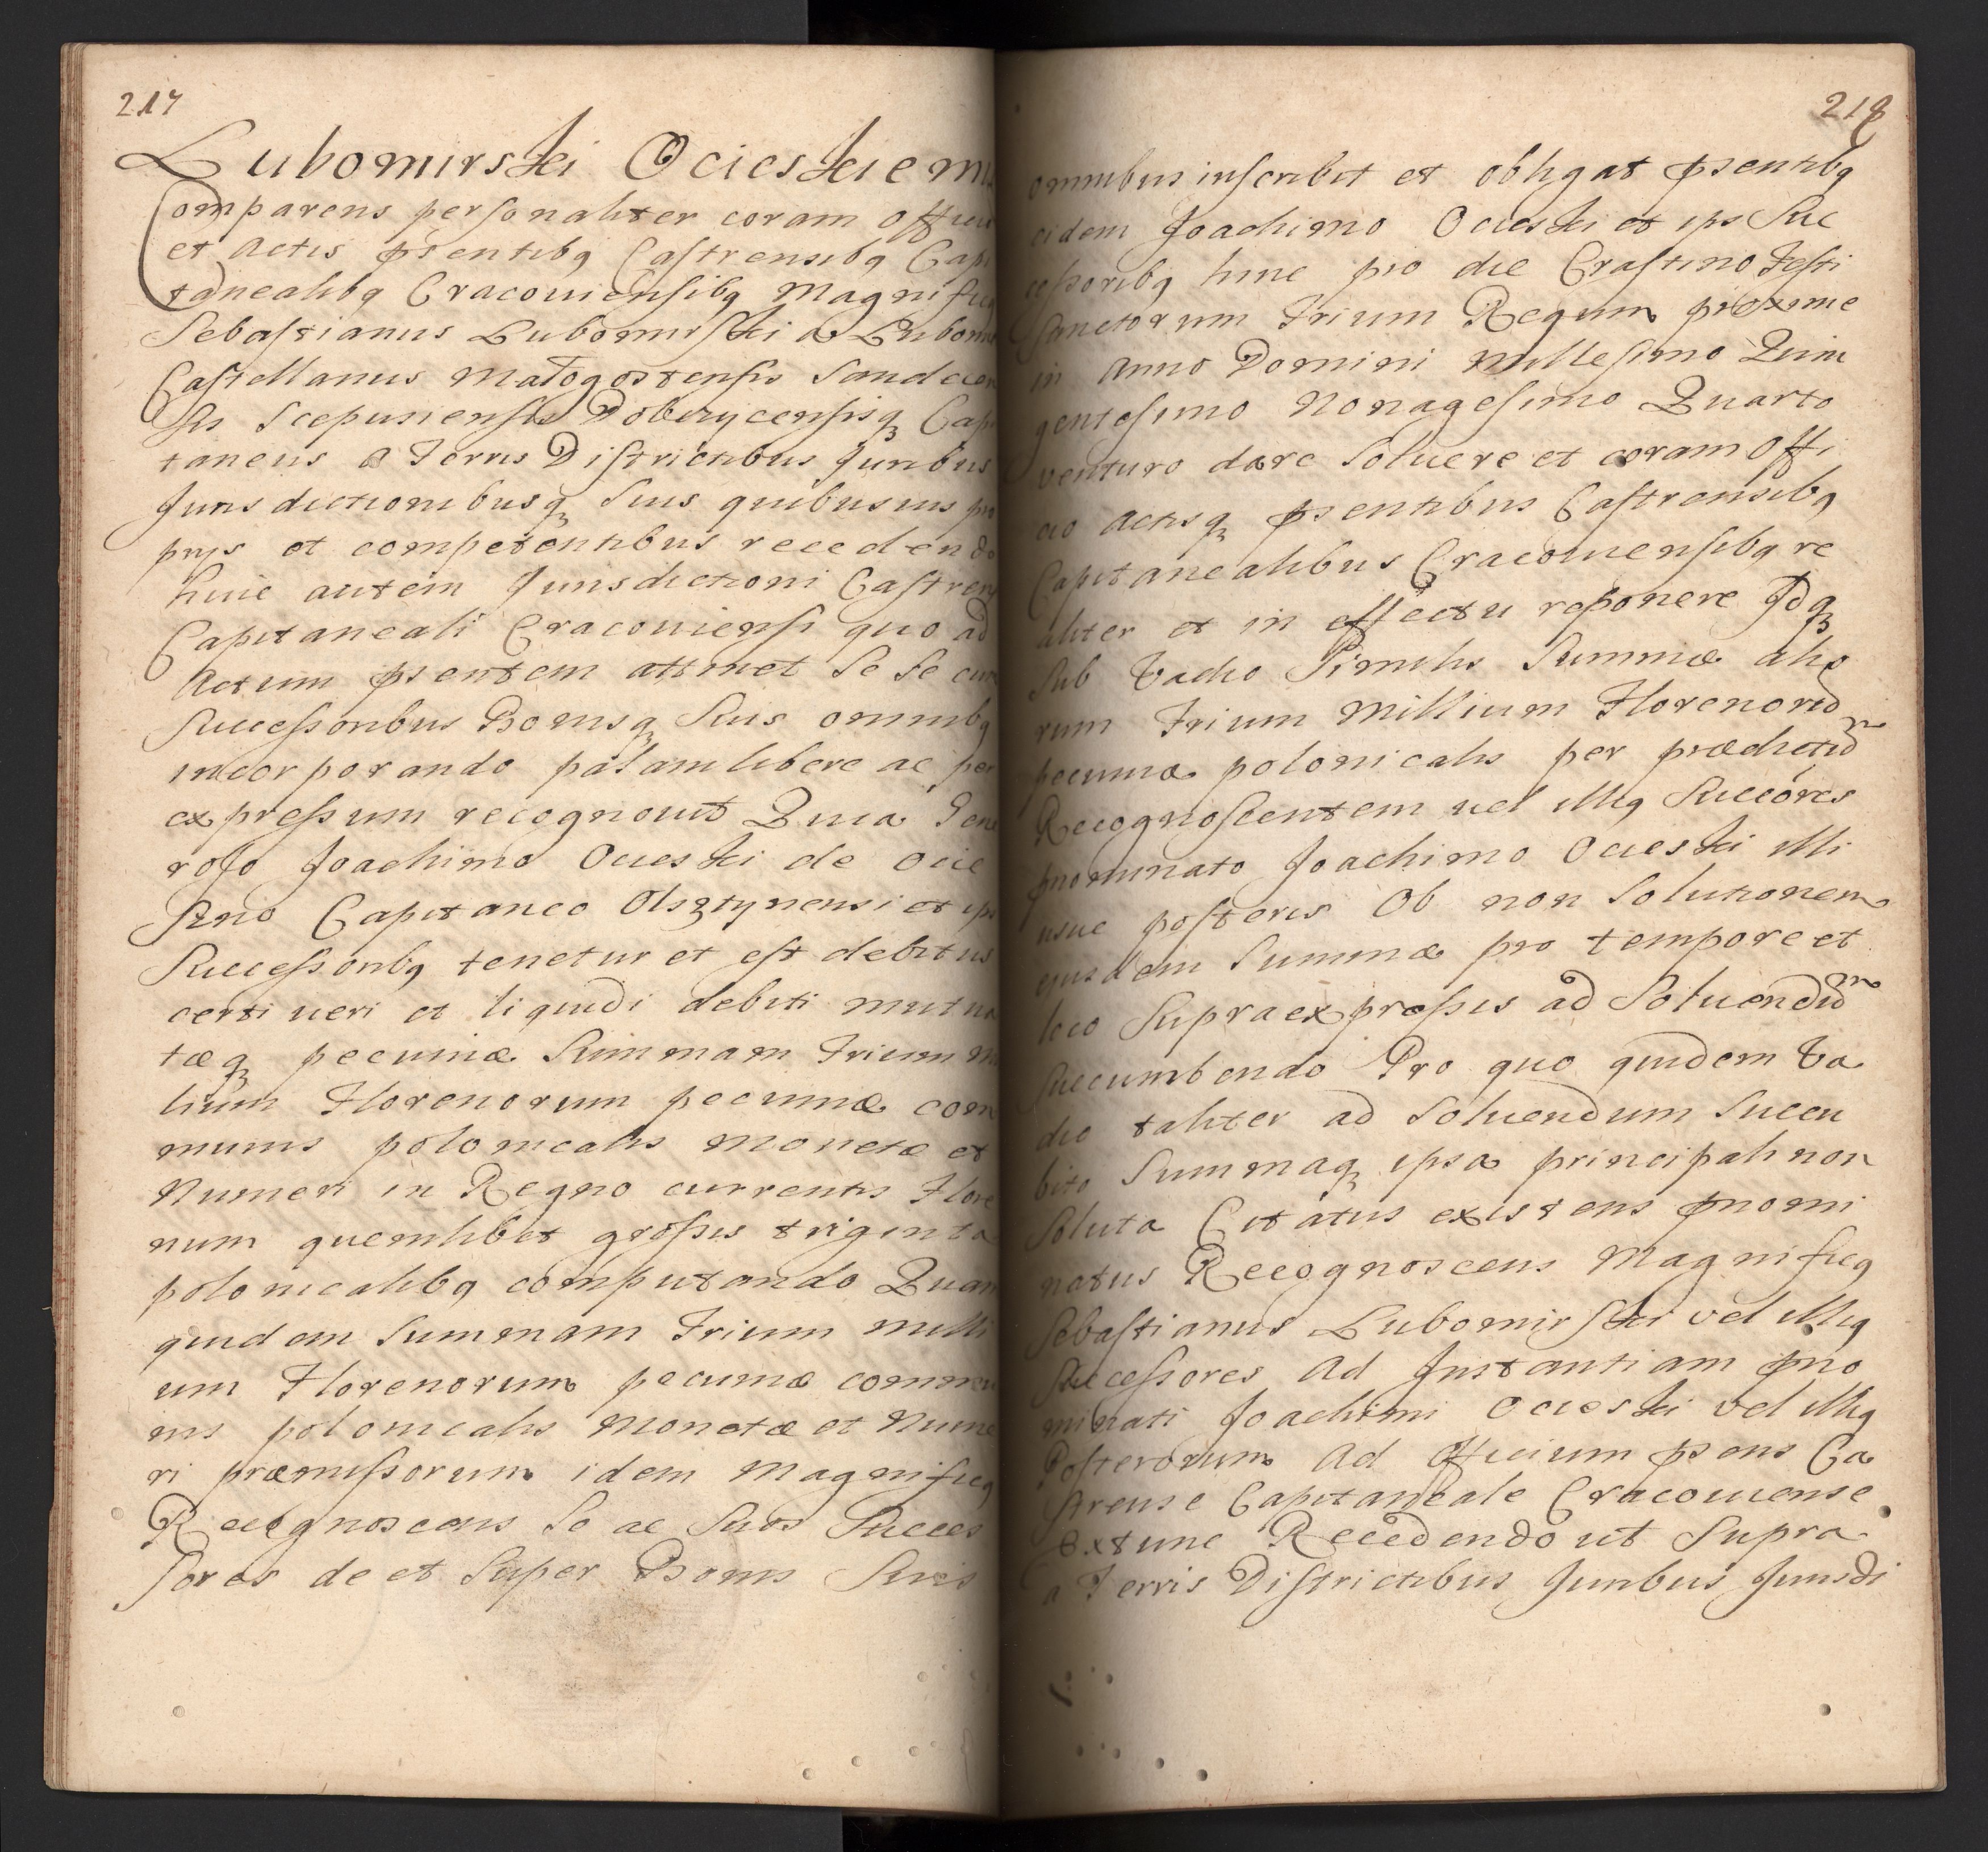 217
Lubomirski Ocieskiemu
Comparens personaliter coram officio
et Actis pñtibq Castrensibq Capi
tanealibq Cracouiensibq Magnificq
Sebastianus Lubomirski a Lubomi
Castellanus Małogostensis Sandecen
sis Scepusiensis Dobczycensisq Capi
taneus a Terris Districtibus Juribus
Jurisdictionibusq suis quibusuis pro
prijs et competentibus recedendo
huic autem Jurisdictioni Castrensi
Capitaneali Cracouiensi quo ad
Actum psentem attinet Se Se cum
Successoribus Bonisq Suis omnibq
incorporando palam libere ac per
expressum recognouit Quia Gene
roso Joachimo Ocieski de Ocie
szyno Capitaneo Olsztynensi et ips
Successoribq tenetur et est debitus
certi ueri et liquidi debiti mutua
tæq pecuniæ Summam Trium mi
lium Florenorum pecuniæ com
munis polonicalis monetæ et
Numeri in Regno currentis Flore
num quemlibet grossis triginta
polonicalibq computando Quam
quidem Summam Trium milli
um Florenorum pecuniæ commu
nis polonicalis monetæ et Nume
ri præmissorum idem Magnificq
Recognoscens Se ac Suos Succes
sores de et Super Bonis Suis
218
omnibus inscribit et obligat psentibq
eidem Joachimo Ocieski et ips Suc
cessoribq hinc pro die Crastino Festi
Sanctorum Trium Regum proxime
in Anno Domini Millesimo Quin
gentesimo Nonagesimo Quarto
venturo dare Soluere et coram Offi
cio Actisq psentibus Castrensibq
Capitanealibus Cracouiensibq re
aliter et in effectu reponere Idq
Sub Vadio Similis Summæ alio
rum Trium Millium Florenorũ
pecuniæ polonicalis per prædictũ
Recognoscentem uel illiq Succores
pnominato Joachimo Ocieski illi
usue posteris Ob non Solutionem
eiusdem Summæ pro tempore et
loco Supraexpressis ad Soluendũ
Succumbendo Pro quo quidem Va
dio taliter ad Soluendum Succu
bito Summaq ipsa principali non
Soluta Citatus existens pnomi
natus Recognoscens Magnificq
Sebastianus Lubomirski vel illiq
Successores Ad Instantiam pno
minati Joachimi Ocieski vel illiq
Posterorum Ad Officium psens Ca
strense Capitaneale Cracouiense
Extunc Recedendo ut Supra
a Terris Districtibus Juribus Jurisdi